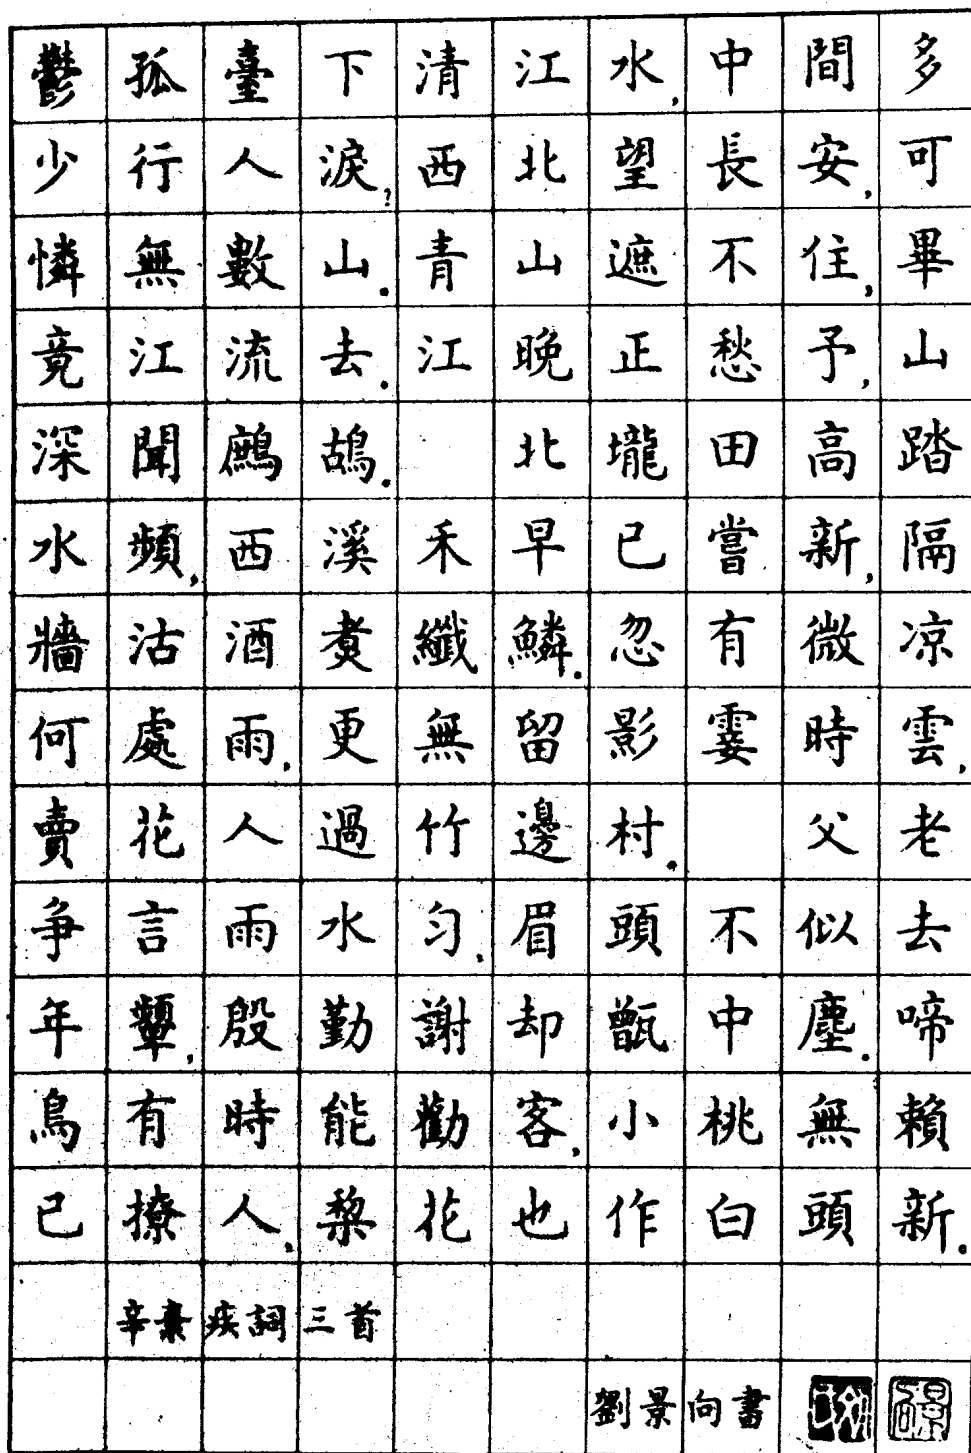 鬱孤臺下清江水,中間多
少行人淚?西北望長安,可
憐無數山.青山遮不住,畢
竟江流去.江晚正愁予,山
深聞鷓鴣. 北壠田高踏
水頻,西溪禾早已嘗新,隔
牆沽酒煑纖鱗.忽有微凉
何處雨,更無留影霎時雲,
賣花人過竹邊村. 父老
爭言雨水匀,眉頭不似去
年顰,殷勤謝却甑中塵.啼
鳥有時能勸客,小桃無賴
已撩人,梨花也作白頭新.
辛棄疾詞三首
劉景向書